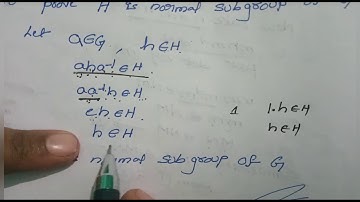 prove H is normal subgroup of G
Let a∈G, h∈H
aha⁻¹∈H.
aa⁻¹h∈H.
eh∈H.
h∈H
1 1.h∈H
h∈H
normal subgroup of G